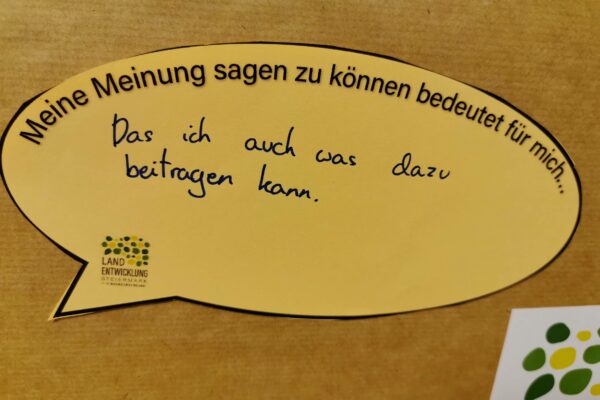 Meine Meinung sagen zu können bedeutet für mich...
Das ich auch was dazu
beitragen kann.
LAND
ENTWICKLUNG
STEIERMARK